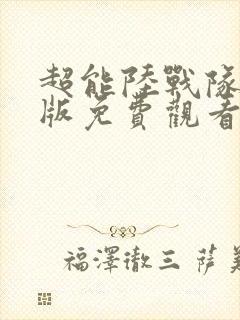 超能陸戰隊
版免費觀看
福澤徹三 薩美